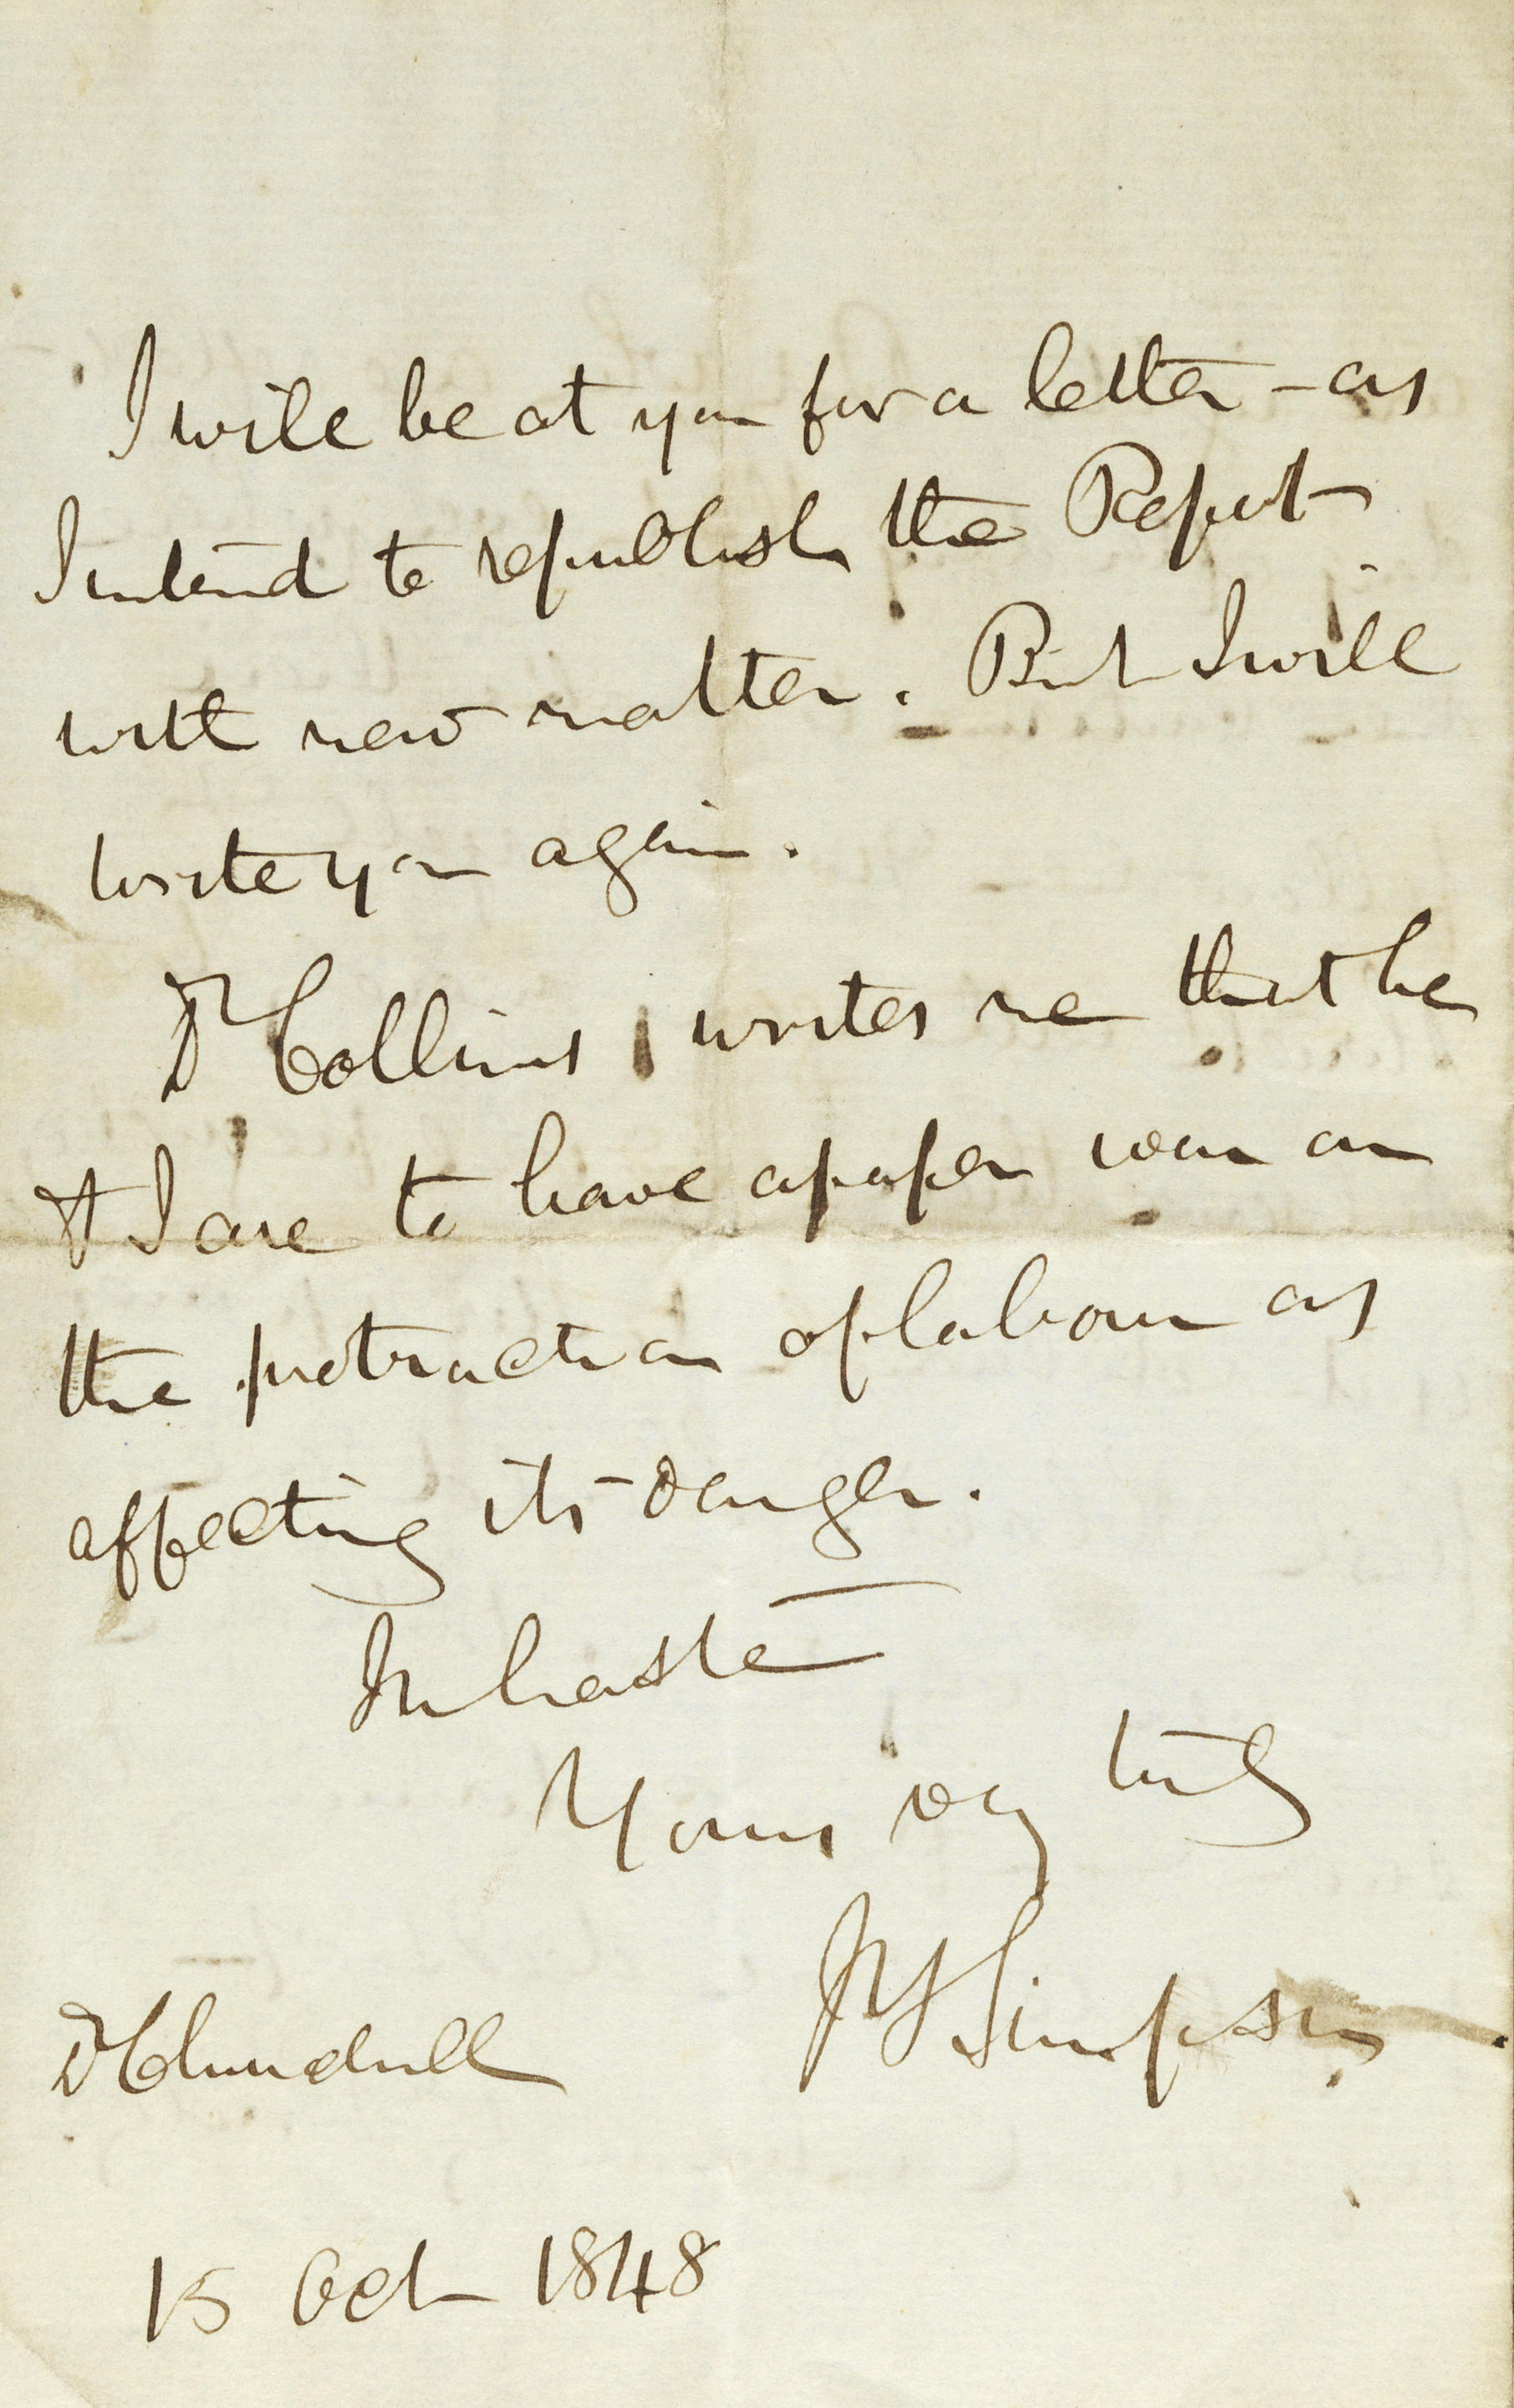 I will be at you for a letter – as
I intend to republish the Report
with new matter. But I will
write you again.
Dr Collins writes me that he
& I are to have a paper war on
the protraction of labour as
affecting its danger.
In haste
Yours very truly
JY Simpson
Dr
15 Oct 1848